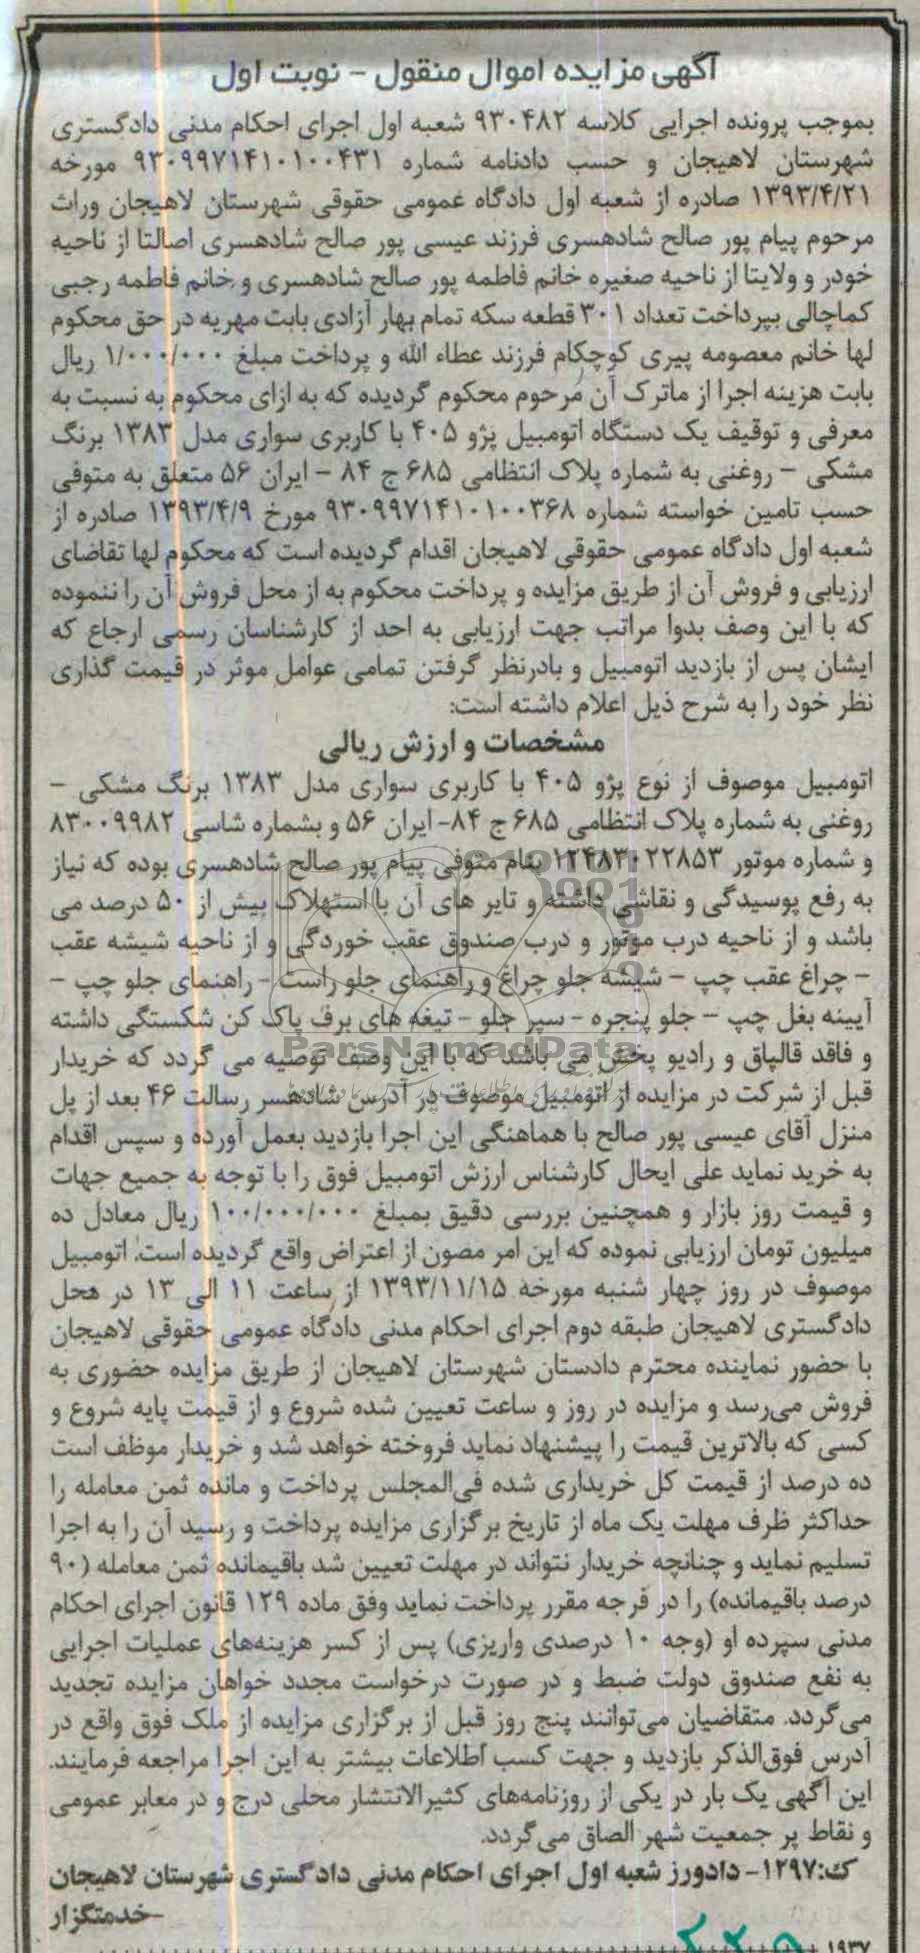 آگهی مزایده اموال منقول - نوبت اول
بموجب پرونده اجرایی کلاسه ۹۳۰۴۸۲ شعبه اول اجرای احکام مدنی دادگستری
شهرستان لاهیجان و حسب دادنامه شماره ۹۳۰۹۹۷۱۴۱۰۱۰۰۴۳۱ مورخه
۱۳۹۳/۴/۲۱ صادره از شعبه اول دادگاه عمومی حقوقی شهرستان لاهیجان وراث
مرحوم پیام پور صالح شادهسری فرزند عیسی پور صالح شادهسری اصالتا از ناحیه
خودر و ولایتا از ناحیه صغیره خانم فاطمه پور صالح شادهسری و خانم فاطمه رجبی
کماچالی بپرداخت تعداد ۳۰۱ قطعه سکه تمام بهار آزادی بابت مهریه در حق محکوم
لها خانم معصومه پیری کوچکام فرزند عطاء الله و پرداخت مبلغ ۱/۰۰۰/۰۰۰ ریال
بابت هزینه اجرا از ماترک آن مرحوم محکوم گردیده که به ازای محکوم به نسبت به
معرفی و توقیف یک دستگاه اتومبیل پژو ۴۰۵ با کاربری سواری مدل ۱۳۸۳ برنگ
مشکی - روغنی به شماره پلاک انتظامی ۶۸۵ ج ۸۴ - ایران ۵۶ متعلق به متوفی
حسب تامین خواسته شماره ۹۳۰۹۹۷۱۴۱۰۱۰۰۳۶۸ مورخ ۱۳۹۳/۴/۹ صادره از
شعبه اول دادگاه عمومی حقوقی لاهیجان اقدام گردیده است که محکوم لها تقاضای
ارزیابی و فروش آن از طریق مزایده و پرداخت محکوم به از محل فروش آن را ننموده
که با این وصف بدوا مراتب جهت ارزیابی به احد از کارشناسان رسمی ارجاع که
ایشان پس از بازدید اتومبیل و بادرنظر گرفتن تمامی عوامل موثر در قیمت گذاری
نظر خود را به شرح ذیل اعلام داشته است:
مشخصات و ارزش ریالی
اتومبیل موصوف از نوع پژو ۴۰۵ با کاربری سواری مدل ۱۳۸۳ برنگ مشکی -
روغنی به شماره پلاک انتظامی ۶۸۵ ج ۸۴- ایران ۵۶ و بشماره شاسی ۸۳۰۰۹۹۸۲
و شماره موتور ۱۲۴۸۳۰۲۲۸۵۳ بنام متوفی پیام پور صالح شادهسری بوده که نیاز
به رفع پوسیدگی و نقاشی داشته و تایر های آن با استهلاک بیش از ۵۰ درصد می
باشد و از ناحیه درب موتور و درب صندوق عقب خوردگی و از ناحیه شیشه عقب
- چراغ عقب چپ - شیشه جلو چراغ و راهنمای جلو راست - راهنمای جلو چپ -
آیینه بغل چپ - جلو پنجره - سپر جلو - تیغه های برف پاک کن شکستگی داشته
و فاقد قالپاق و رادیو پخش می باشد که با این وصف توصیه می گردد که خریدار
قبل از شرکت در مزایده از اتومبیل موصوف در آدرس شادهسر رسالت ۴۶ بعد از پل
منزل آقای عیسی پور صالح با هماهنگی این اجرا بازدید بعمل آورده و سپس اقدام
به خرید نماید علی ایحال کارشناس ارزش اتومبیل فوق را با توجه به جمیع جهات
و قیمت روز بازار و همچنین بررسی دقیق بمبلغ ۱۰۰/۰۰۰/۰۰۰ ریال معادل ده
میلیون تومان ارزیابی نموده که این امر مصون از اعتراض واقع گردیده است. اتومبیل
موصوف در روز چهار شنبه مورخه ۱۳۹۳/۱۱/۱۵ از ساعت ۱۱ الی ۱۳ در محل
دادگستری لاهیجان طبقه دوم اجرای احکام مدنی دادگاه عمومی حقوقی لاهیجان
با حضور نماینده محترم دادستان شهرستان لاهیجان از طریق مزایده حضوری به
فروش می‌رسد و مزایده در روز و ساعت تعیین شده شروع و از قیمت پایه شروع و
کسی که بالاترین قیمت را پیشنهاد نماید فروخته خواهد شد و خریدار موظف است
ده درصد از قیمت کل خریداری شده فی‌المجلس پرداخت و مانده ثمن معامله را
حداکثر ظرف مهلت یک ماه از تاریخ برگزاری مزایده پرداخت و رسید آن را به اجرا
تسلیم نماید و چنانچه خریدار نتواند در مهلت تعیین شد باقیمانده ثمن معامله (۹۰
درصد باقیمانده) را در فرجه مقرر پرداخت نماید وفق ماده ۱۲۹ قانون اجرای احکام
مدنی سپرده او (وجه ۱۰ درصدی واریزی) پس از کسر هزینه‌های عملیات اجرایی
به نفع صندوق دولت ضبط و در صورت درخواست مجدد خواهان مزایده تجدید
می‌گردد. متقاضیان می‌توانند پنج روز قبل از برگزاری مزایده از ملک فوق واقع در
آدرس فوق‌الذکر بازدید و جهت کسب اطلاعات بیشتر به این اجرا مراجعه فرمایند.
این آگهی یک بار در یکی از روزنامه‌های کثیرالانتشار محلی درج و در معابر عمومی
و نقاط پر جمعیت شهر الصاق می‌گردد.
ک:۱۲۹۷- دادورز شعبه اول اجرای احکام مدنی دادگستری شهرستان لاهیجان
-خدمتگزار
۱۹۳۷
ParsNamadData